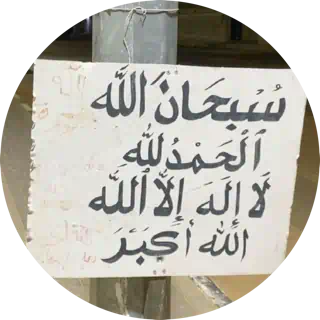 سُبْحَانَ اللَّه
اَلْحَمْدُ لِلَّه
لَا إِلَهَ إِلَّا اللَّه
اللَّه أَكْبَر